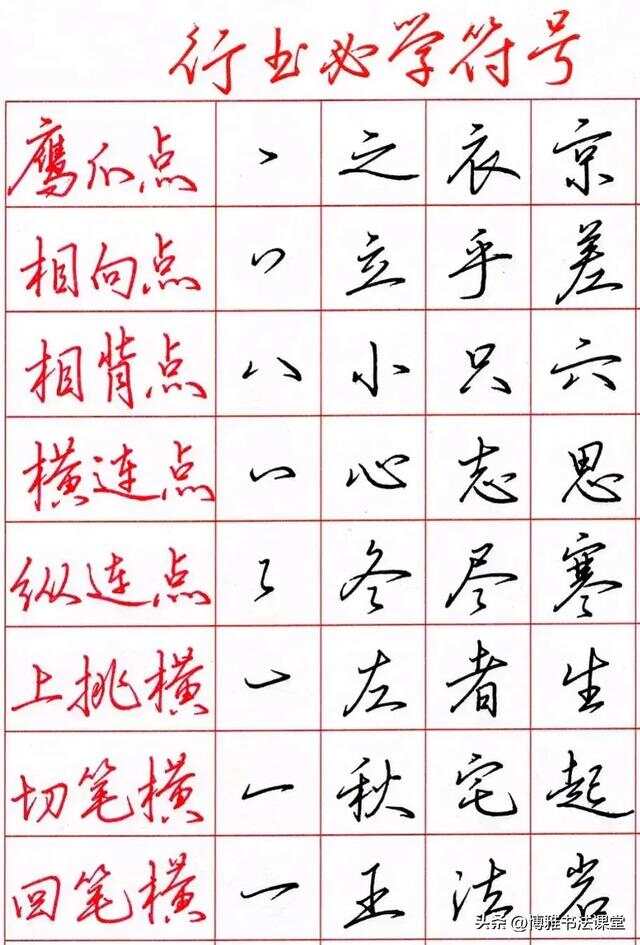 行书必学符号
鹰爪点 丶 之 衣 京
相向点 丷 立 乎 差
相背点 八 小 只 六
横连点 心 志 思
纵连点 冬 尽 寒
上挑横 一 左 者 生
切笔横 一 秋 宅 起
回笔横 一 王 法 岩
头条@博雅书法课堂